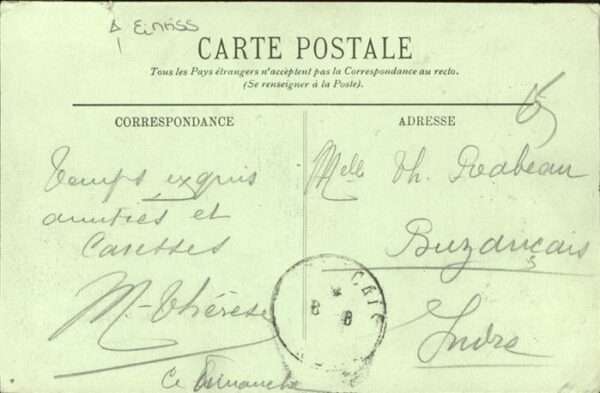 CARTE POSTALE
Tous les Pays étrangers n'acceptent pas la Correspondance au recto.
(Se renseigner à la Poste).
CORRESPONDANCE
Temps exquis
amitiés et
Caresses
M-Thérèse
Ce Dimanche
ADRESSE
Melle Th. Rabeau
Buzançais
Indre